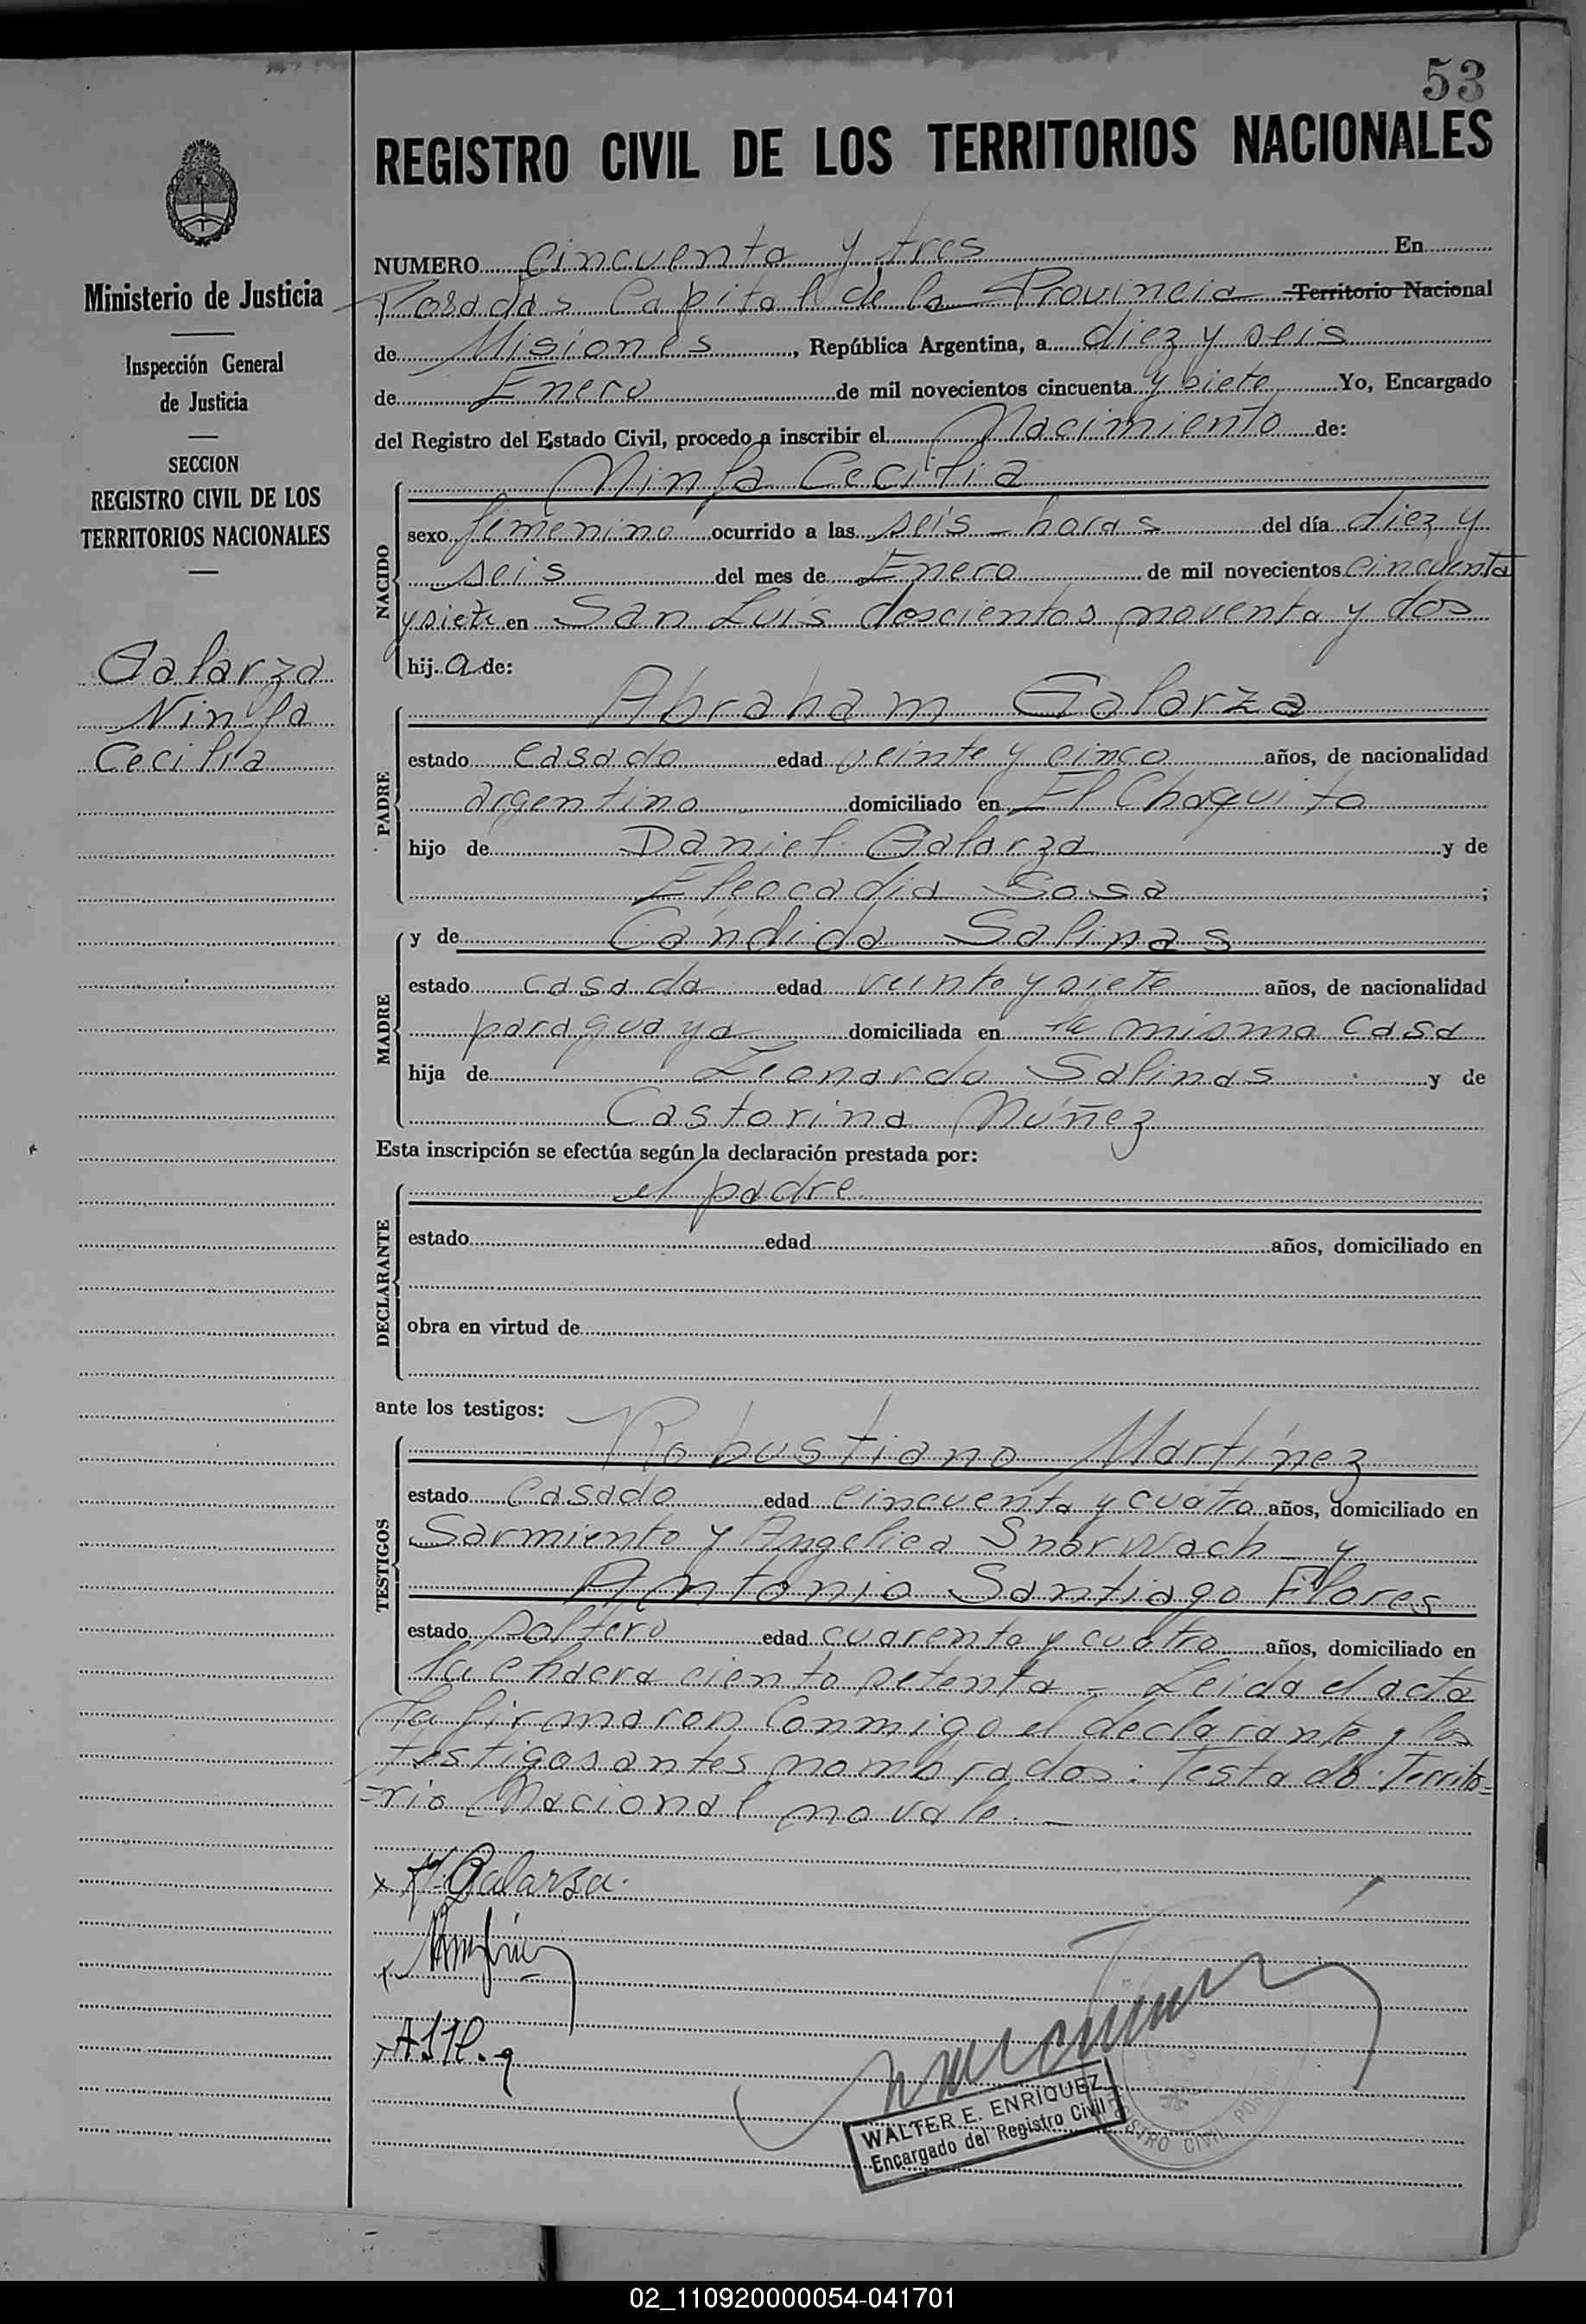 53
REGISTRO CIVIL DE LOS TERRITORIOS NACIONALES
Ministerio de Justicia
Inspección General
de Justicia
SECCION
REGISTRO CIVIL DE LOS
TERRITORIOS NACIONALES
Galarza
Ninfa
Cecilia
NUMERO cincuenta y tres En
Posadas Capital de la Provincia Territorio Nacional
de Misiones, República Argentina, a diez y seis
de Enero de mil novecientos cincuenta y siete Yo, Encargado
del Registro del Estado Civil, procedo a inscribir el Nacimiento de:
NACIDO
Ninfa Cecilia
sexo femenino ocurrido a las seis - horas del día diez y
seis del mes de Enero de mil novecientos cincuenta
y siete en San Luis doscientos noventa y dos
hija de:
PADRE
Abraham Galarza
estado casado edad veinte y cinco años, de nacionalidad
argentino domiciliado en El Chaquito
hijo de Daniel Galarza y de
Eleocadia Sosa;
MADRE
y de Cándida Salinas
estado casada edad veinte y siete años, de nacionalidad
paraguaya domiciliada en la misma casa
hija de Leonardo Salinas y de
Castorina Núñez
Esta inscripción se efectúa según la declaración prestada por:
DECLARANTE
el padre
estado edad años, domiciliado en
obra en virtud de
ante los testigos:
TESTIGOS
Robustiano Martínez
estado casado edad cincuenta y cuatro años, domiciliado en
Sarmiento y Angelica - y
Antonio Santiago Flores
estado soltero edad cuarenta y cuatro años, domiciliado en
la chacra ciento setenta - Leida el acta
la firmaron conmigo el declarante y los
testigos antes nombrados: Testado: Territo=
=rio Nacional no vale. -
x A. Galarza.
WALTER E. ENRIQUEZ
Encargado del Registro Civil
02_110920000054-041701